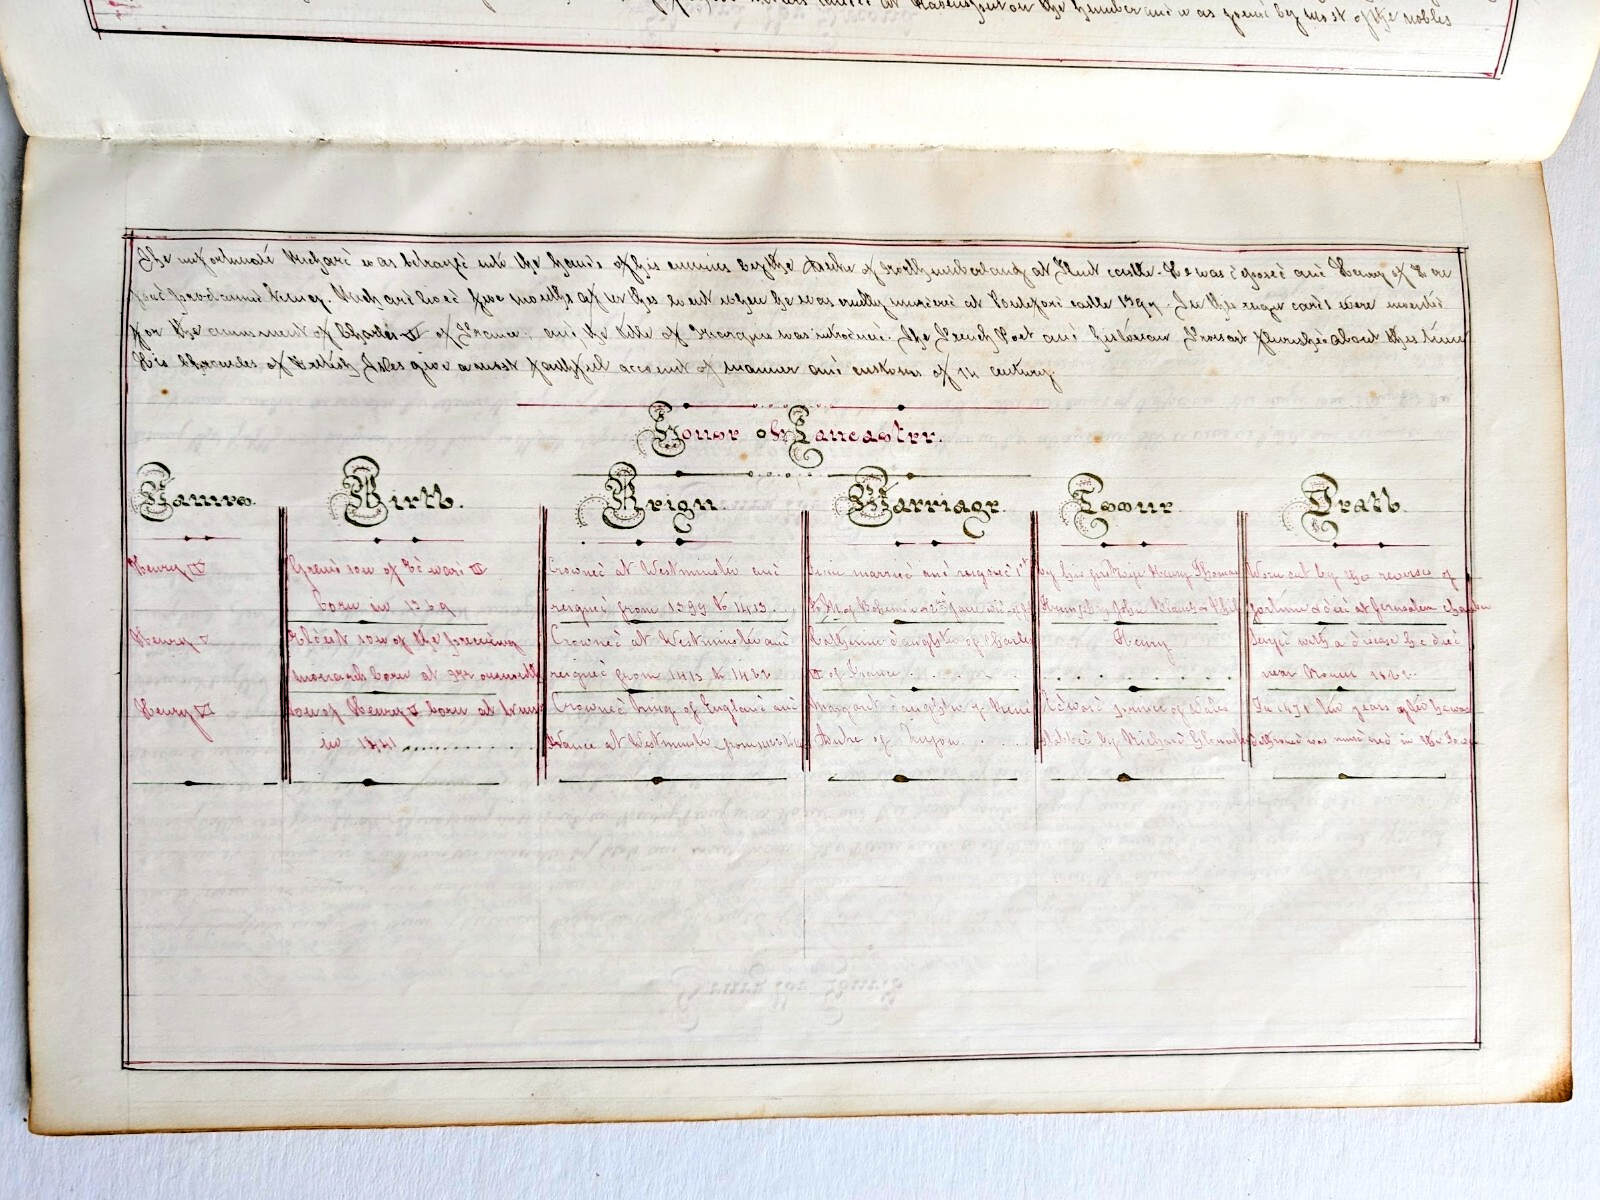 at Ravenspur on the Humber and was joined by most of the nobles
The unfortunate Richard was betrayed into the hands of his enemies by the Duke of Northumberland at Flint castle. He was deposed and Henry of Here
ford proclaimed King. Richard lived five months after this event when he was cruelly murdered at Pontefract castle 1399. In this reign cards were invented
for the amusement of Charles VI of France; and the title of Marquis was introduced. The French Poet and historian Froisart flourished about this time
His Chronicles of British Isles give a most faithful account of manner and customs of 14 century.
House of Lancaster.
Names. Birth. Reign. Marriage. Issue. Death.
Henry IV Grand son of Edward III Crowned at Westminster and married and 1st by his first wife Henry Thomas Worn out by the reverse of
born in 1369 reigned from 1399 to 1413. of Bohemia 2nd Humphry John Blanch & Phil fortune & died at Jerusalem chamber
Henry V Eldest son of the preceding Crowned at Westminster and Katherine daughter of Charles Henry with a disease he died
monarch born at Monmouth reigned from 1413 to 1422 VI of France near Rouen 1422.
Henry VI Son of Henry V born at Winds Crowned King of England and Margaret daughter of Reni Edward prince of Wales In 1471 ten years after he was
in 1421 France at Westminster Duke of Anjou. stabbed by Richard Gloucester dethroned was murdered in the Tower